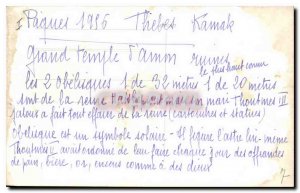 Pâques 1996 Thèbes Karnak
grand temple d'amon ruines
le plus haut connu
les 2 obélisques 1 de 32 mètres 1 de 20 mètres
sont de la reine mari Thoutmes III
jaloux a fait tout effacer de la reine (cartouches et statues)
Obélisque est un symbole solaire - Il figure l'astre lui-même
Thoutmès II avait ordonné de leur faire chaque jour des offrandes
de pain, bière, or, encens comme à des dieux
7